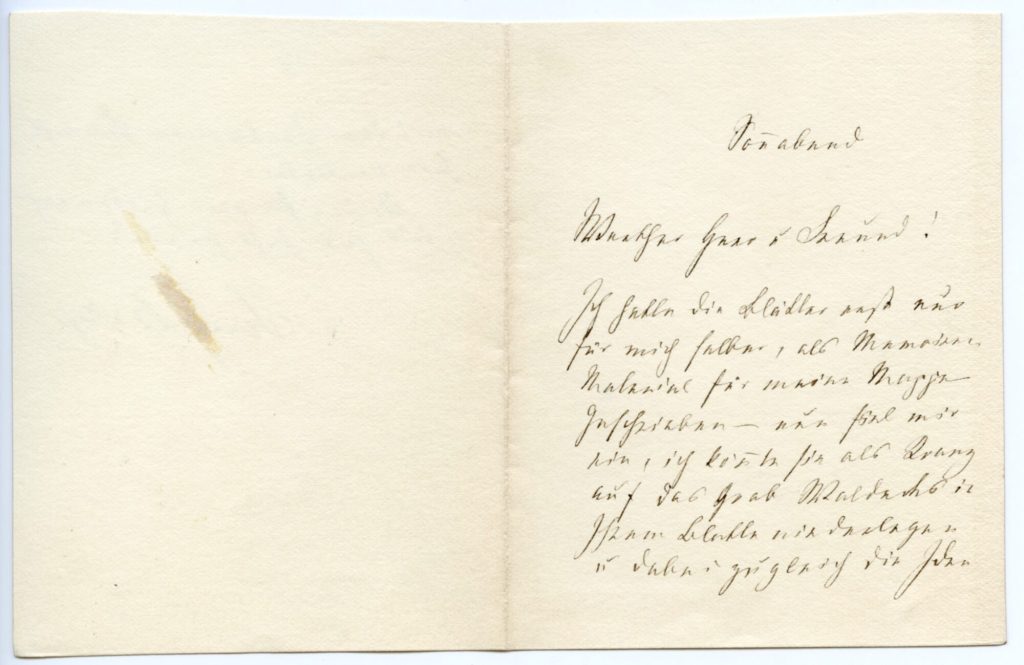 Sonnabend
Werther Herr u Freund!
Ich hatte die Blätter erst nur
für mich selber, als Memoiren
Material für meine Mappe
geschrieben — nun fiel mir
ein, ich könnte sie als Kranz
auf das Grab Waldecks in
Ihrem Blatte niederlegen
u dabei zugleich die Idee